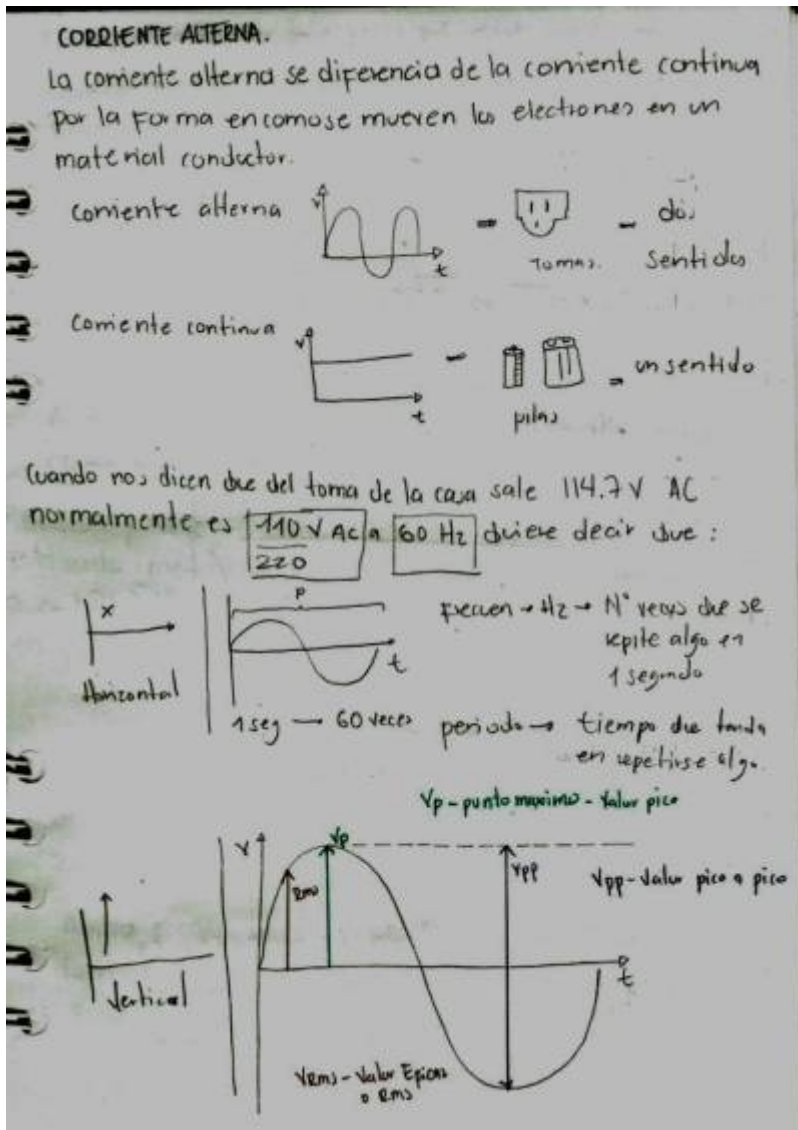 CORRIENTE ALTERNA.
La corriente alterna se diferencia de la corriente continua
por la forma en como se mueven los electrones en un
material conductor.
corriente alterna V t = TOMAS. - dos
sentidos
Corriente continua V t - pilas = un sentido
Cuando nos dicen que del toma de la casa sale 114.7 V AC
normalmente es 110 V AC a 60 Hz quiere decir que:
220
X P t frecuen → Hz → N° veces que se
repite algo en
1 segundo
Horizontal
1 seg — 60 veces periodo → tiempo que tarda
en repetirse algo.
Vp - punto maximo - Valor pico
V Vp Vpp
Rms Vpp - Valor pico a pico
t
Vertical
VRms - Valor Eficas
o Rms